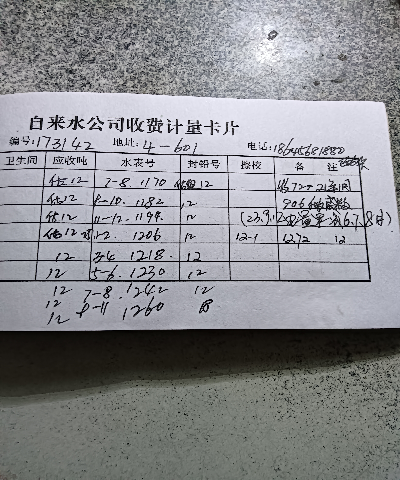 自来水公司收费计量卡片
编号:173142 地址: 4-601 电话:18645681880
卫生间 应收吨 水表号 封铅号 擦校 备 注
估12 7-8. 1170 12
估12 9-10. 1182 12
估12 11-12. 1194 12
估12 1-2. 1206 12 12-1 1272 12
12 3-4 1218. 12
12 5-6. 1230 12
12 7-8. 1242 12
12 9-11 1260
12